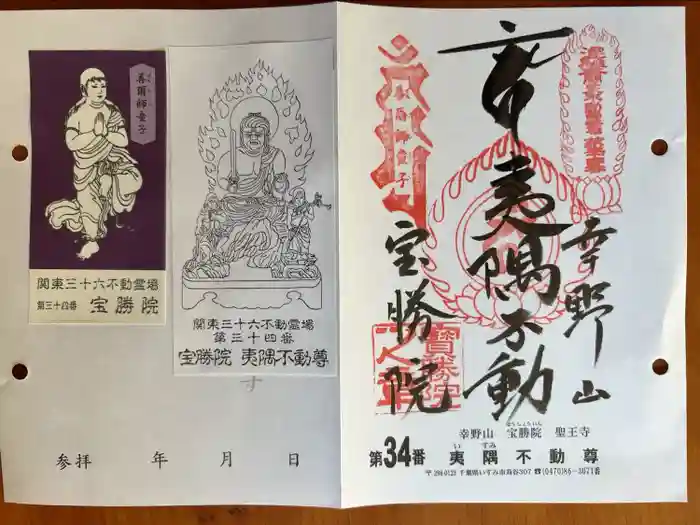 善爾師童子
関東三十六不動霊場
第三十四番 宝勝院
関東三十六不動霊場
第三十四番
宝勝院 夷隅不動尊
参拝 年 月 日
幸野山
夷隅不動
宝勝院
善爾師童子
寶勝院
幸野山 宝勝院 聖王寺
ほうしょういん
第34番 夷隅不動尊
い すみ
〒298-0123 千葉県いすみ市苅谷307 ☎(0470)86-3671番